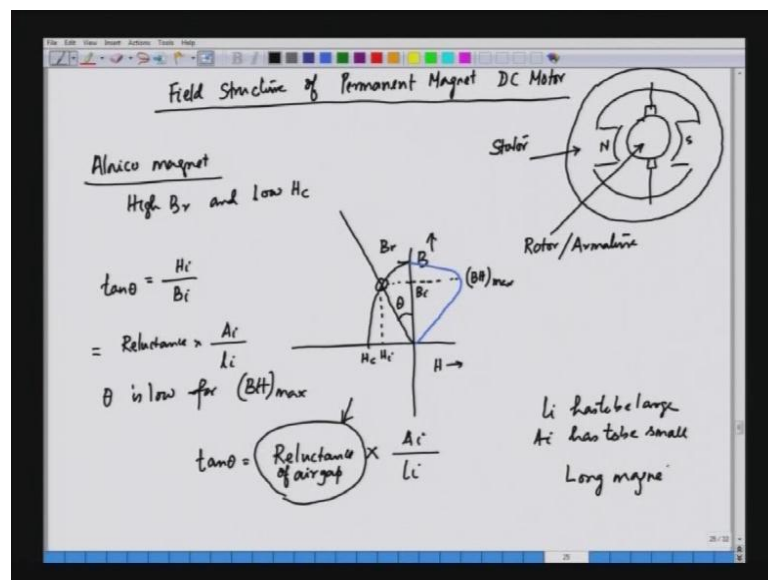 File Edit View Insert Actions Tools Help
Field Structure of Permanent Magnet DC Motor
Stator
N
S
Rotor/Armature
Alnico magnet
High Br and low Hc
tanθ = Hi / Bi
= Reluctance × Ai / li
θ is low for (BH)max
Br
B ↑
(BH)max
Bi
θ
Hc Hi
H →
tanθ = Reluctance of airgap × Ai / li
li has to be large
Ai has to be small
Long magne
28/30
28